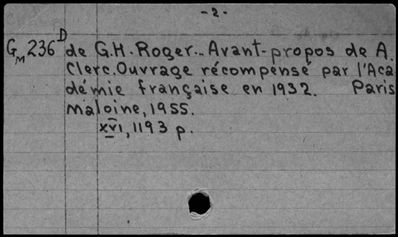 -2-
G M 236 D de G.H. Roger.. Avant-propos de A.
Clerc. Ouvrage récompensé par l'Aca
démie française en 1932. Paris
maloine, 1955.
XVI, 1193 p.